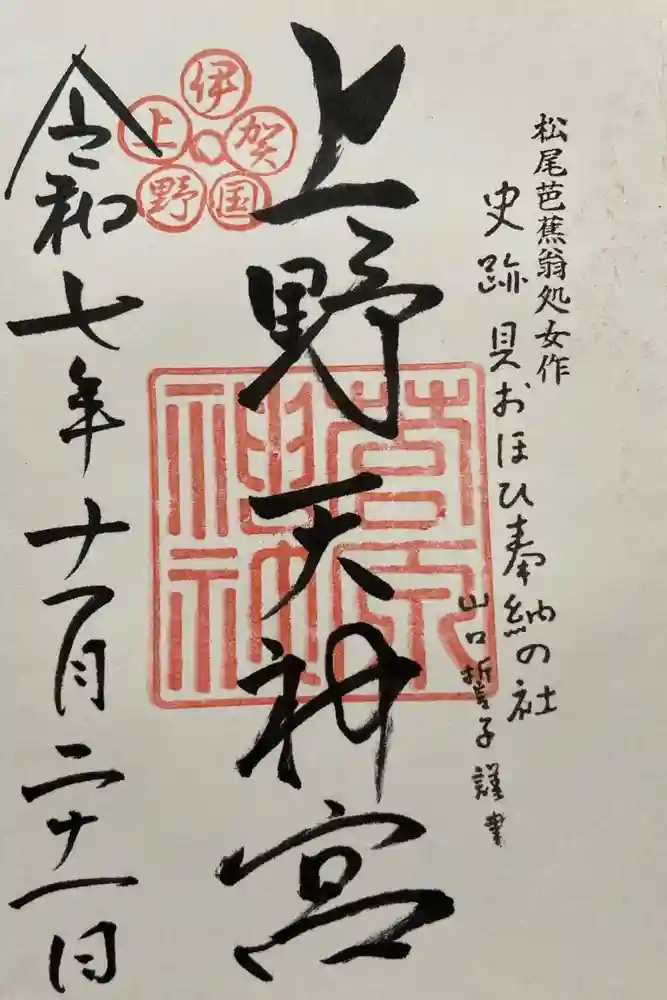 松尾芭蕉翁処女作
史跡 貝おほひ奉納の社
山口誓子謹書
上野天神宮
伊賀国上野
菅原神社
令和七年十一月二十一日